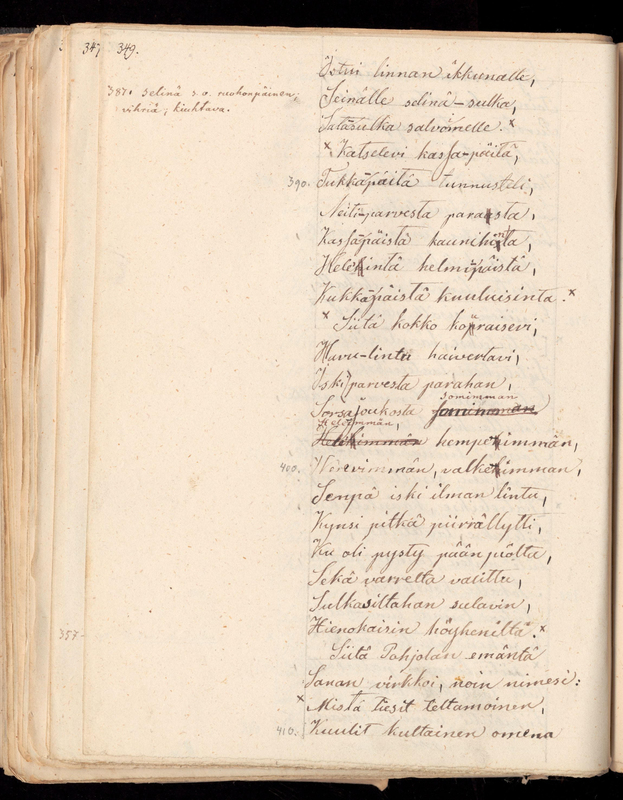 347 349.
387. Selinä s. o. ruohonpäinen,
vihriä, kiuhtava.
Istui linnan ikkunalle,
Seinälle selinä-sulka,
Satasulka salvoimelle.ˣ
ˣ Katselevi kassa-päitä,
390. Tukkapäitä tunnusteli,
Neiti-parvesta parasta,
Kassapäistä kaunihinta,
Heleintä helmipäistä,
Kukkapäistä kuuluisinta.ˣ
ˣ Siitä kokko kopraisevi,
Havu-lintu haivertavi,
Iski parvesta parahan,
somimman
Sorsajoukosta
Heleimmän,
Helehimmän hempeimmän,
400. Werevimmän, valkeimman,
Senpä iski ilman lintu,
Kynsi pitkä piirrällytti,
Ku oli pysty päänpiolta,
Sekä varrelta valittu,
Sulkasiltahan sulavin,
357
Hienokaisin höyheniltä.ˣ
Siitä Pohjolan emäntä
Sanan virkkoi, noin nimesi:
ˣ Mistä tiesit tettamoinen,
410. Kuulit kultainen omena